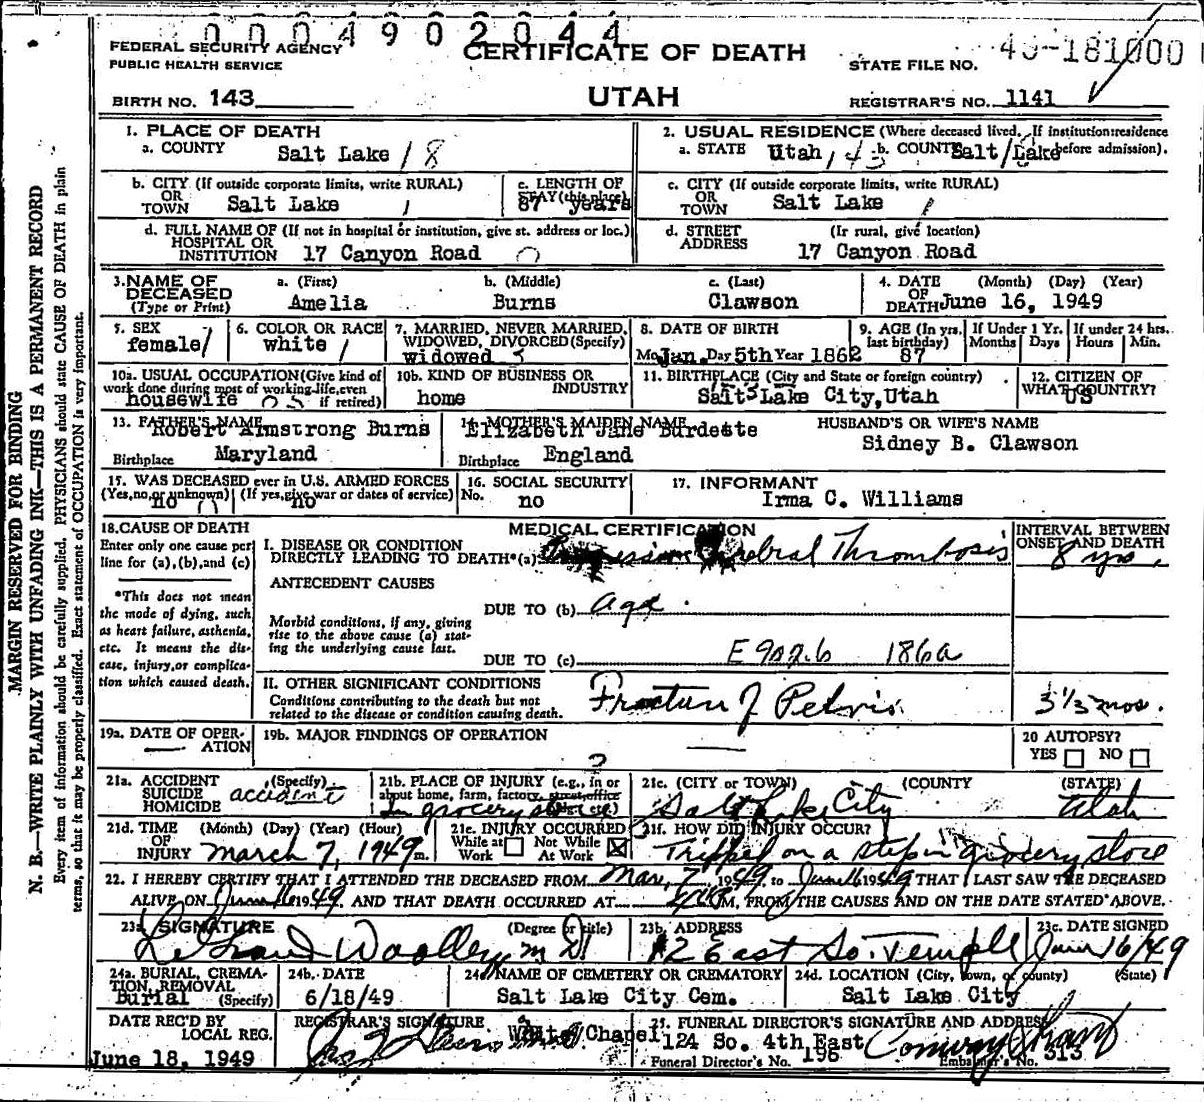 0004902044
FEDERAL SECURITY AGENCY
PUBLIC HEALTH SERVICE
CERTIFICATE OF DEATH
STATE FILE NO. 181000
BIRTH NO. 143
UTAH
REGISTRAR'S NO. 1141
MARGIN RESERVED FOR BINDING
N. B.—WRITE PLAINLY WITH UNFADING INK—THIS IS A PERMANENT RECORD
Every item of information should be carefully supplied. PHYSICIANS should state CAUSE OF DEATH in plain
terms, so that it may be properly classified. Exact statement of OCCUPATION is very important.
1. PLACE OF DEATH
a. COUNTY Salt Lake 18
2. USUAL RESIDENCE (Where deceased lived. If institution: residence
before admission).
a. STATE Utah, 43 b. COUNTY Salt Lake
b. CITY (If outside corporate limits, write RURAL)
OR
TOWN Salt Lake 1
c. LENGTH OF
STAY (this place)
87 years
c. CITY (If outside corporate limits, write RURAL)
OR
TOWN Salt Lake 1
d. FULL NAME OF (If not in hospital or institution, give st. address or loc.)
HOSPITAL OR
INSTITUTION 17 Canyon Road
d. STREET (Ir rural, give location)
ADDRESS 17 Canyon Road
3. NAME OF
DECEASED
(Type or Print)
a. (First) b. (Middle) c. (Last)
Amelia Burns Clawson
4. DATE (Month) (Day) (Year)
OF
DEATH June 16, 1949
5. SEX
female 1
6. COLOR OR RACE
white 1
7. MARRIED, NEVER MARRIED,
WIDOWED, DIVORCED (Specify)
widowed
8. DATE OF BIRTH
Mo. Jan. Day 5th Year 1862
9. AGE (In yrs.
last birthday) 87
If Under 1 Yr.
Months Days
If under 24 hrs.
Hours Min.
10a. USUAL OCCUPATION (Give kind of
work done during most of working life, even
if retired)
housewife
10b. KIND OF BUSINESS OR
INDUSTRY
home
11. BIRTHPLACE (City and State or foreign country)
Salt Lake City, Utah
12. CITIZEN OF
WHAT COUNTRY?
US
13. FATHER'S NAME
Robert Armstrong Burns
Birthplace Maryland
14. MOTHER'S MAIDEN NAME
Elizabeth Jane Burdette
Birthplace England
HUSBAND'S OR WIFE'S NAME
Sidney B. Clawson
15. WAS DECEASED ever in U.S. ARMED FORCES
(Yes, no, or unknown) (If yes, give war or dates of service)
no no
16. SOCIAL SECURITY
No. no
17. INFORMANT
Irma C. Williams
18. CAUSE OF DEATH
Enter only one cause per
line for (a), (b), and (c)
*This does not mean
the mode of dying, such
as heart failure, asthenia,
etc. It means the dis-
ease, injury, or complica-
tion which caused death.
MEDICAL CERTIFICATION
INTERVAL BETWEEN
ONSET AND DEATH
I. DISEASE OR CONDITION
DIRECTLY LEADING TO DEATH*(a) Cerebral Thrombosis 8 yrs.
ANTECEDENT CAUSES
DUE TO (b) age.
Morbid conditions, if any, giving
rise to the above cause (a) stat-
ing the underlying cause last.
DUE TO (c) E902.6 186a
II. OTHER SIGNIFICANT CONDITIONS
Conditions contributing to the death but not
related to the disease or condition causing death.
Fracture of Pelvis 3 1/3 mos.
19a. DATE OF OPER-
ATION
19b. MAJOR FINDINGS OF OPERATION
20 AUTOPSY?
YES NO
21a. ACCIDENT (Specify)
SUICIDE
HOMICIDE accident
21b. PLACE OF INJURY (e.g., in or
about home, farm, factory, street, office
bldg., etc.)
In grocery store
21c. (CITY or TOWN) (COUNTY (STATE)
Salt Lake City Utah
21d. TIME (Month) (Day) (Year) (Hour)
OF
INJURY March 7, 1949 m.
21e. INJURY OCCURRED
While at Work Not While At Work
21f. HOW DID INJURY OCCUR?
Tripped on a step in grocery store
22. I HEREBY CERTIFY THAT I ATTENDED THE DECEASED FROM Mar, 7 1949, to June 16 1949 THAT I LAST SAW THE DECEASED
ALIVE ON June 16 1949. AND THAT DEATH OCCURRED AT M, FROM THE CAUSES AND ON THE DATE STATED ABOVE.
23a. SIGNATURE (Degree or title)
LeGrand Woolley, M.D.
23b. ADDRESS
12 East So. Temple
23c. DATE SIGNED
June 16/49
24a. BURIAL, CREMA-
TION, REMOVAL
(Specify)
Burial
24b. DATE
6/18/49
24c. NAME OF CEMETERY OR CREMATORY
Salt Lake City Cem.
24d. LOCATION (City, town, or county) (State)
Salt Lake City
DATE REC'D BY
LOCAL REG.
June 18, 1949
REGISTRAR'S SIGNATURE
White Chapel
25. FUNERAL DIRECTOR'S SIGNATURE AND ADDRESS
124 So. 4th East
Funeral Director's No. 196 Embalmer's No. 313